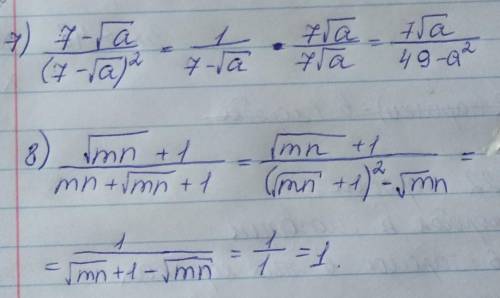 7) (7-√a)/(7-√a)² = 1/(7-√a) · 7√a/7√a = 7√a/(49-a²)
8) (√mn + 1)/(mn+√mn + 1) = (√mn + 1)/((√mn + 1)²-√mn) =
= 1/(√mn+1-√mn) = 1/1 = 1.